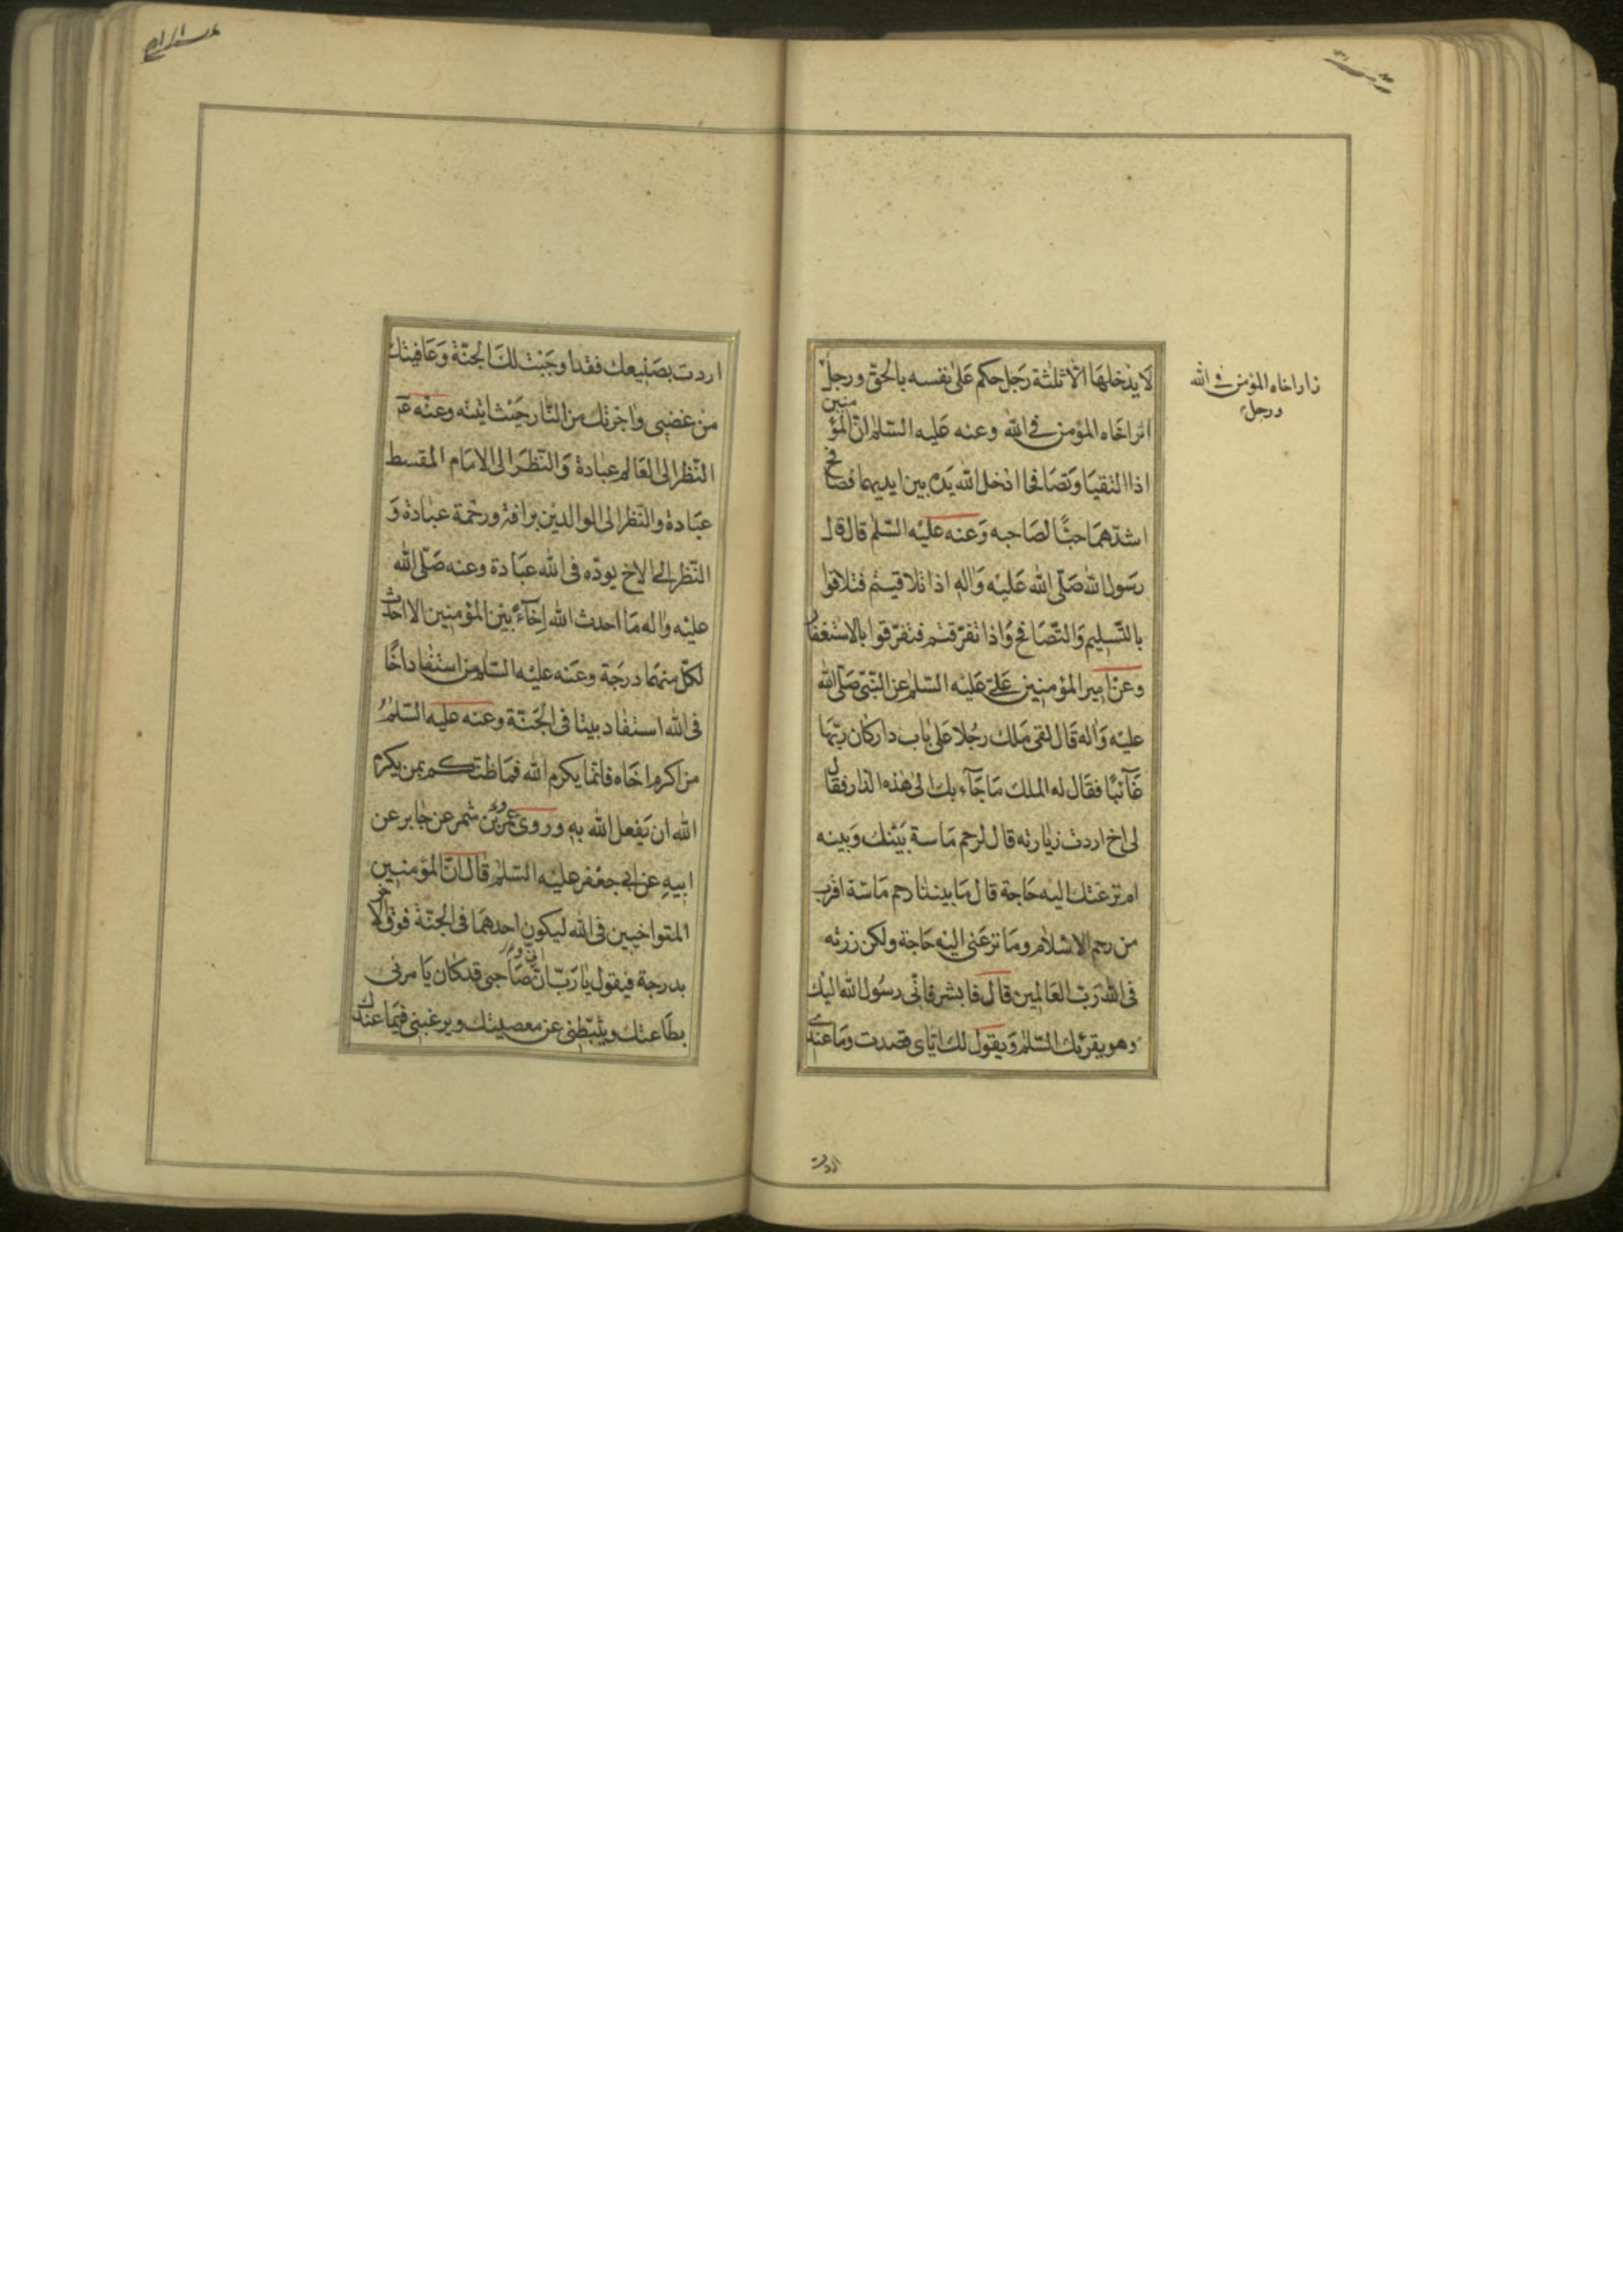 لا يدخلها الا ثلثة رجل حكم على نفسه بالحق ورجل
زار اخاه المؤمن فى الله
ورجل
اثر اخاه المؤمن فى الله وعنه عليه السلم ان المؤمنين
اذا التقيا وتصافحا ادخل الله يده بين ايديهما فصافح
اشدهما حبا لصاحبه وعنه عليه السلم قال قال
رسول الله صلى الله عليه واله اذا تلاقيتم فتلاقوا
بالتسليم والتصافح واذا تفرقتم فتفرقوا بالاستغفار
وعن امير المؤمنين على عليه السلم عن النبى صلى الله
عليه واله قال لقى ملك رجلا على باب دار كان ربها
غائبا فقال له الملك ما جآء بك الى هذه الدار فقال
لى اخ اردت زيارته قال لرحم ماسة بينك وبينه
ام نزعتك اليه حاجة قال ما بيننا رحم ماسة اقرب
من رحم الاسلام وما نزعنى اليه حاجة ولكن زرته
فى الله رب العالمين قال فابشر فانى رسول الله اليك
وهو يقرئك السلم ويقول لك اياى قصدت وما عندى
اردت
اردت بصنيعك فقد اوجبت لك الجنة وعافيتك
من غضبى واجرتك من النار حيث اتيته وعنه ع
النظر الى العالم عبادة والنظر الى الامام المقسط
عبادة والنظر الى الوالدين برافة ورحمة عبادة و
النظر الى الاخ يوده فى الله عبادة وعنه صلى الله
عليه واله ما احدث الله اخآء بين المؤمنين الا احدث
لكل منهما درجة وعنه عليه السلم من استفاد اخا
فى الله استفاد بيتا فى الجنة وعنه عليه السلم
من اكرم اخاه فانما يكرم الله فما ظنكم بمن يكرم
الله ان يفعل الله به وروى عمرو بن شمر عن جابر عن
ابيه عن ابى جعفر عليه السلم قال ان المؤمنين
المتواخيين فى الله ليكون احدهما فى الجنة فوق الاخر
بدرجة فيقول يا رب ان صاحبى قد كان يامرنى
بطاعتك ويثبطنى عن معصيتك ويرغبنى فيما عندك